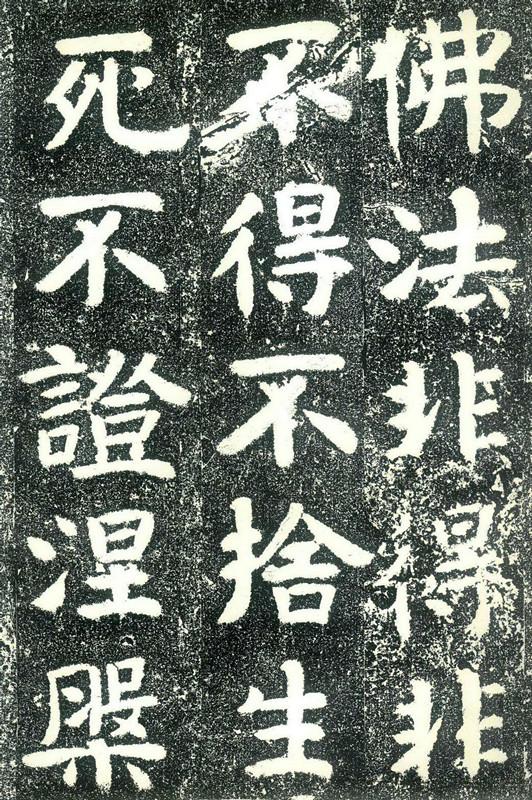 佛法非得非
不得不捨生
死不證涅槃